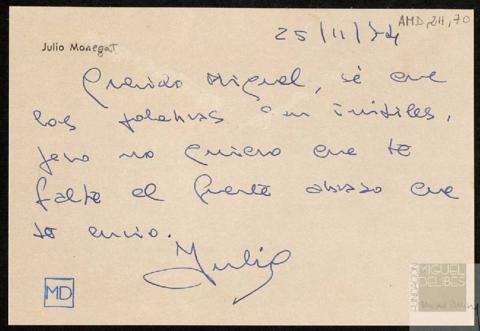 AMD, 211, 70
25/11/74
Julio Monegat
Querido Miguel, sé que
las palabras son inútiles,
pero no quiero que te
falte el fuerte abrazo que
te envío.
Julio
MD
FUNDACIÓN
MIGUEL
DELIBES